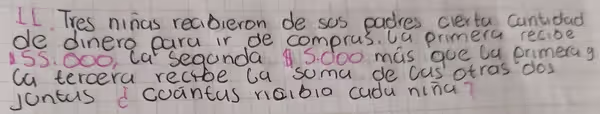 II. Tres niñas recibieron de sus padres cierta cantidad
de dinero para ir de compras. La primera recibe
$55.000, La segunda $5.000 más que La primera y
La tercera recibe La suma de Las otras dos
juntas ¿ cuántas recibio cada niña?